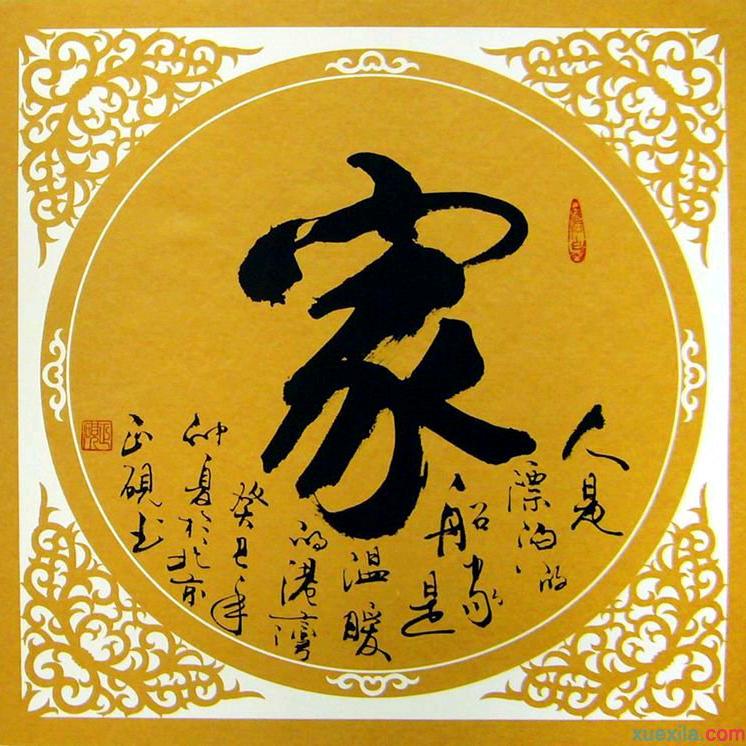 家
人是
漂泊的
船家
是
温暖
的港湾
癸 年
仲夏於北京
正砚书
xuexila.com